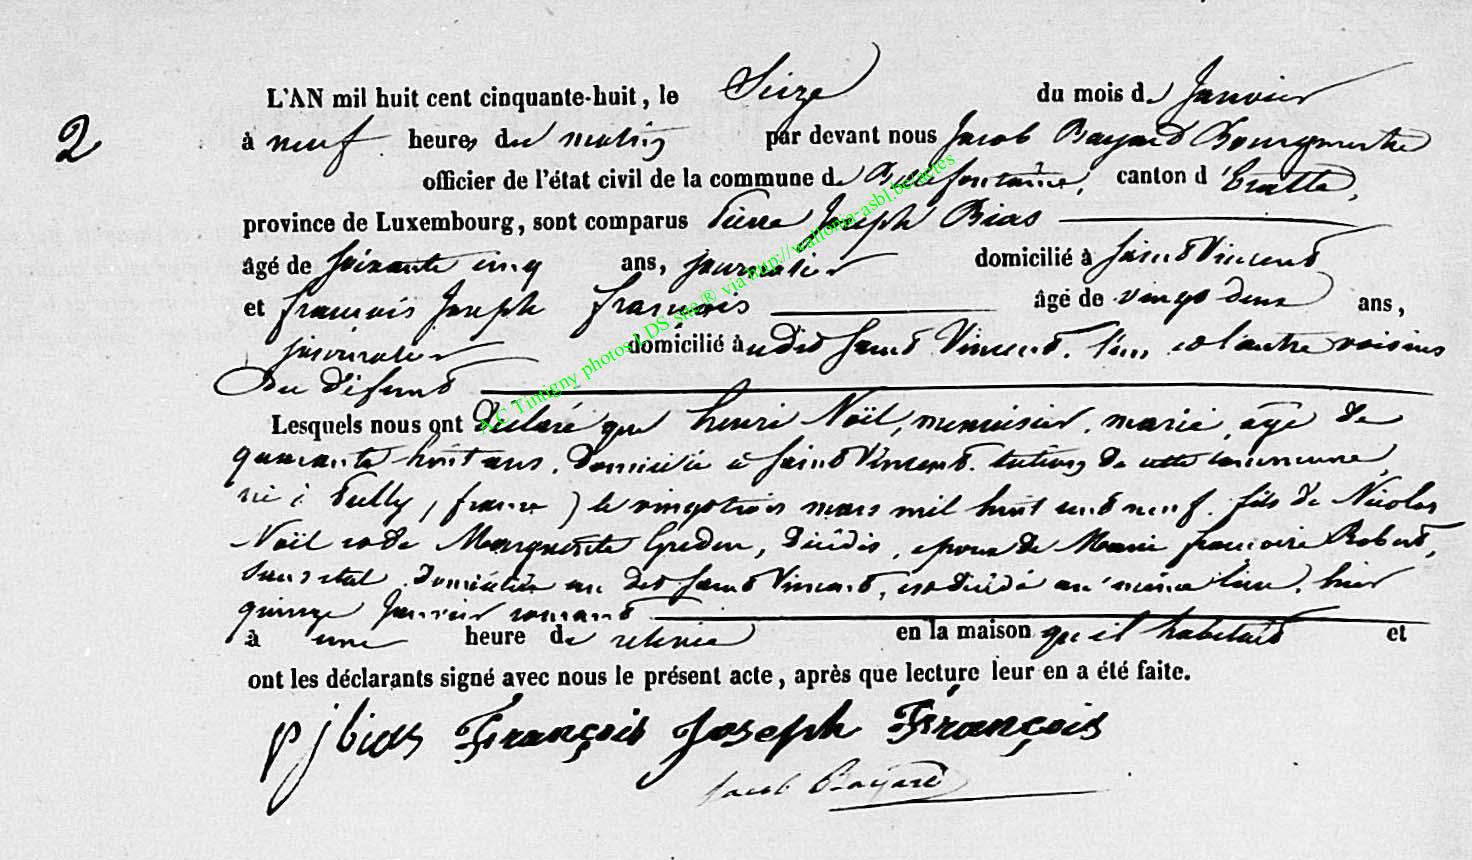 2
L'AN mil huit cent cinquante-huit, le Seize du mois de Janvier
à neuf heures du matin par devant nous Jacob Bayard Bourgmestre
officier de l'état civil de la commune de Bellefontaine, canton d'Etalle,
province de Luxembourg, sont comparus Pierre Joseph Bias
âgé de soixante cinq ans, journalier domicilié à Saint Vincent
et françois Joseph françois âgé de vingt deux ans,
journalier domicilié au dit Saint Vincent, l'un et l'autre voisins
du défunt
Lesquels nous ont déclaré que henri Noël, menuisier, marié, âgé de
quarante huit ans, domicilié à Saint Vincent, section de cette commune,
né à (france) le vingt trois mars mil huit cent neuf, fils de Nicolas
Noël et de Marguerite décédés, époux de Marie françoise Robert,
sans état, domiciliée au dit Saint Vincent, est décédé au même lieu, hier
quinze Janvier courant
à une heure de relevée en la maison qu'il habitait et
ont les déclarants signé avec nous le présent acte, après que lecture leur en a été faite.
pjbias François Joseph François
Jacob Bayard
A.C Tintigny photos LDS site ® via http://wallonia-asbl.be/actes